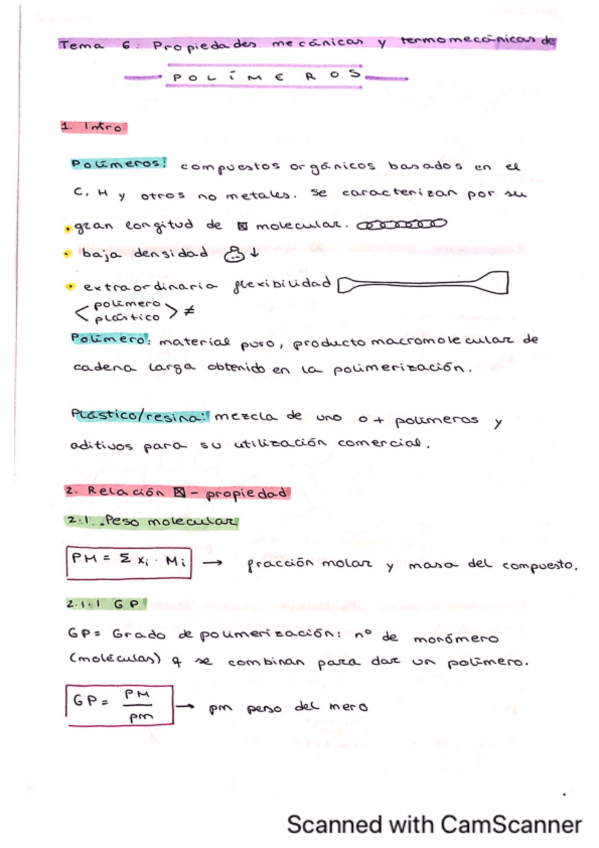 Tema 6: Propiedades mecánicas y termomecánicas de
POLÍMEROS
1. Intro
Polímeros: compuestos orgánicos basados en el
C, H y otros no metales. se caracterizan por su
• gran longitud de ⊠ molecular.
• baja densidad ↓
• extraordinaria flexibilidad
< polímero
plástico > ≠
Polímero: material puro, producto macromolecular de
cadena larga obtenido en la polimerización.
Plástico/resina: mezcla de uno o + polímeros y
aditivos para su utilización comercial.
2. Relación ⊠ - propiedad
2.1. Peso molecular
PM = Σ xi · Mi → fracción molar y masa del compuesto.
2.1.1 GP
GP = Grado de polimerización: nº de monómero
(moléculas) q se combinan para dar un polímero.
GP = PM / pm → pm peso del mero
Scanned with CamScanner